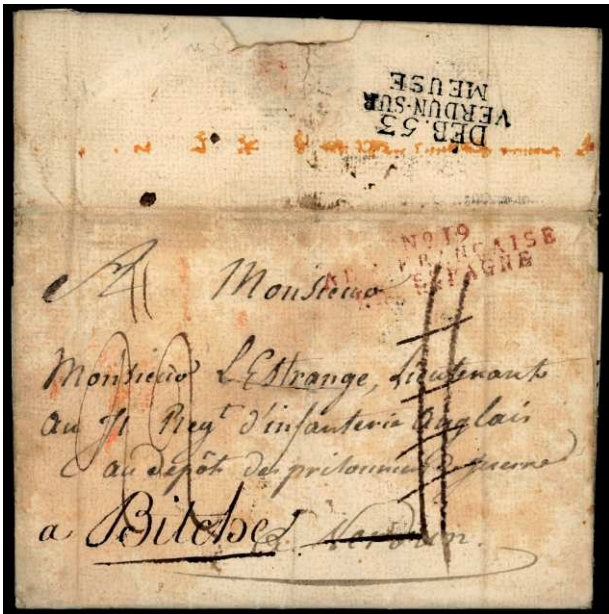 DEB. 53
VERDUN-SUR
MEUSE
No 19
FRANÇAISE
ESPAGNE
A Monsieur
Monsieur L'Estrange, Lieutenant
Au 71 Regt d'infanterie Anglais
au dépôt des prisonniers de guerre
a Bitche
a Verdun.